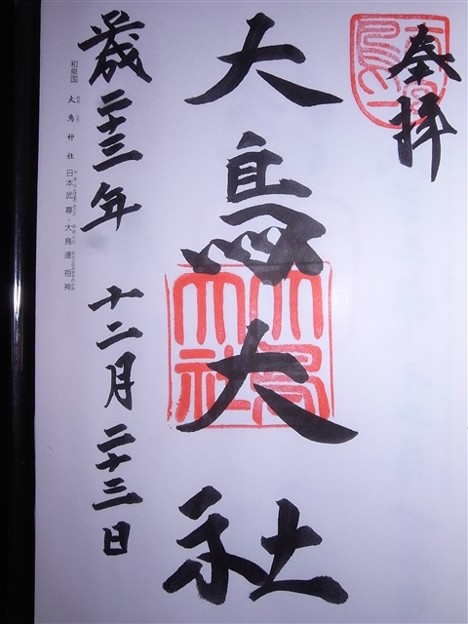 奉拝
大鳥大社
大鳥大社
歳二十三年 十二月二十三日
和泉国 大鳥神社 日本武尊・大鳥連祖神